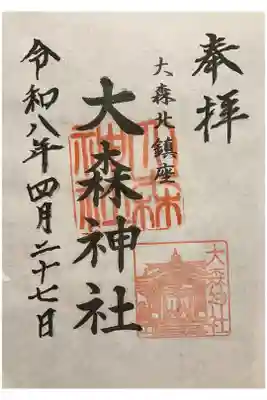 奉拝
大森北鎮座
大森神社
令和八年四月二十七日
大森神社
大森神社